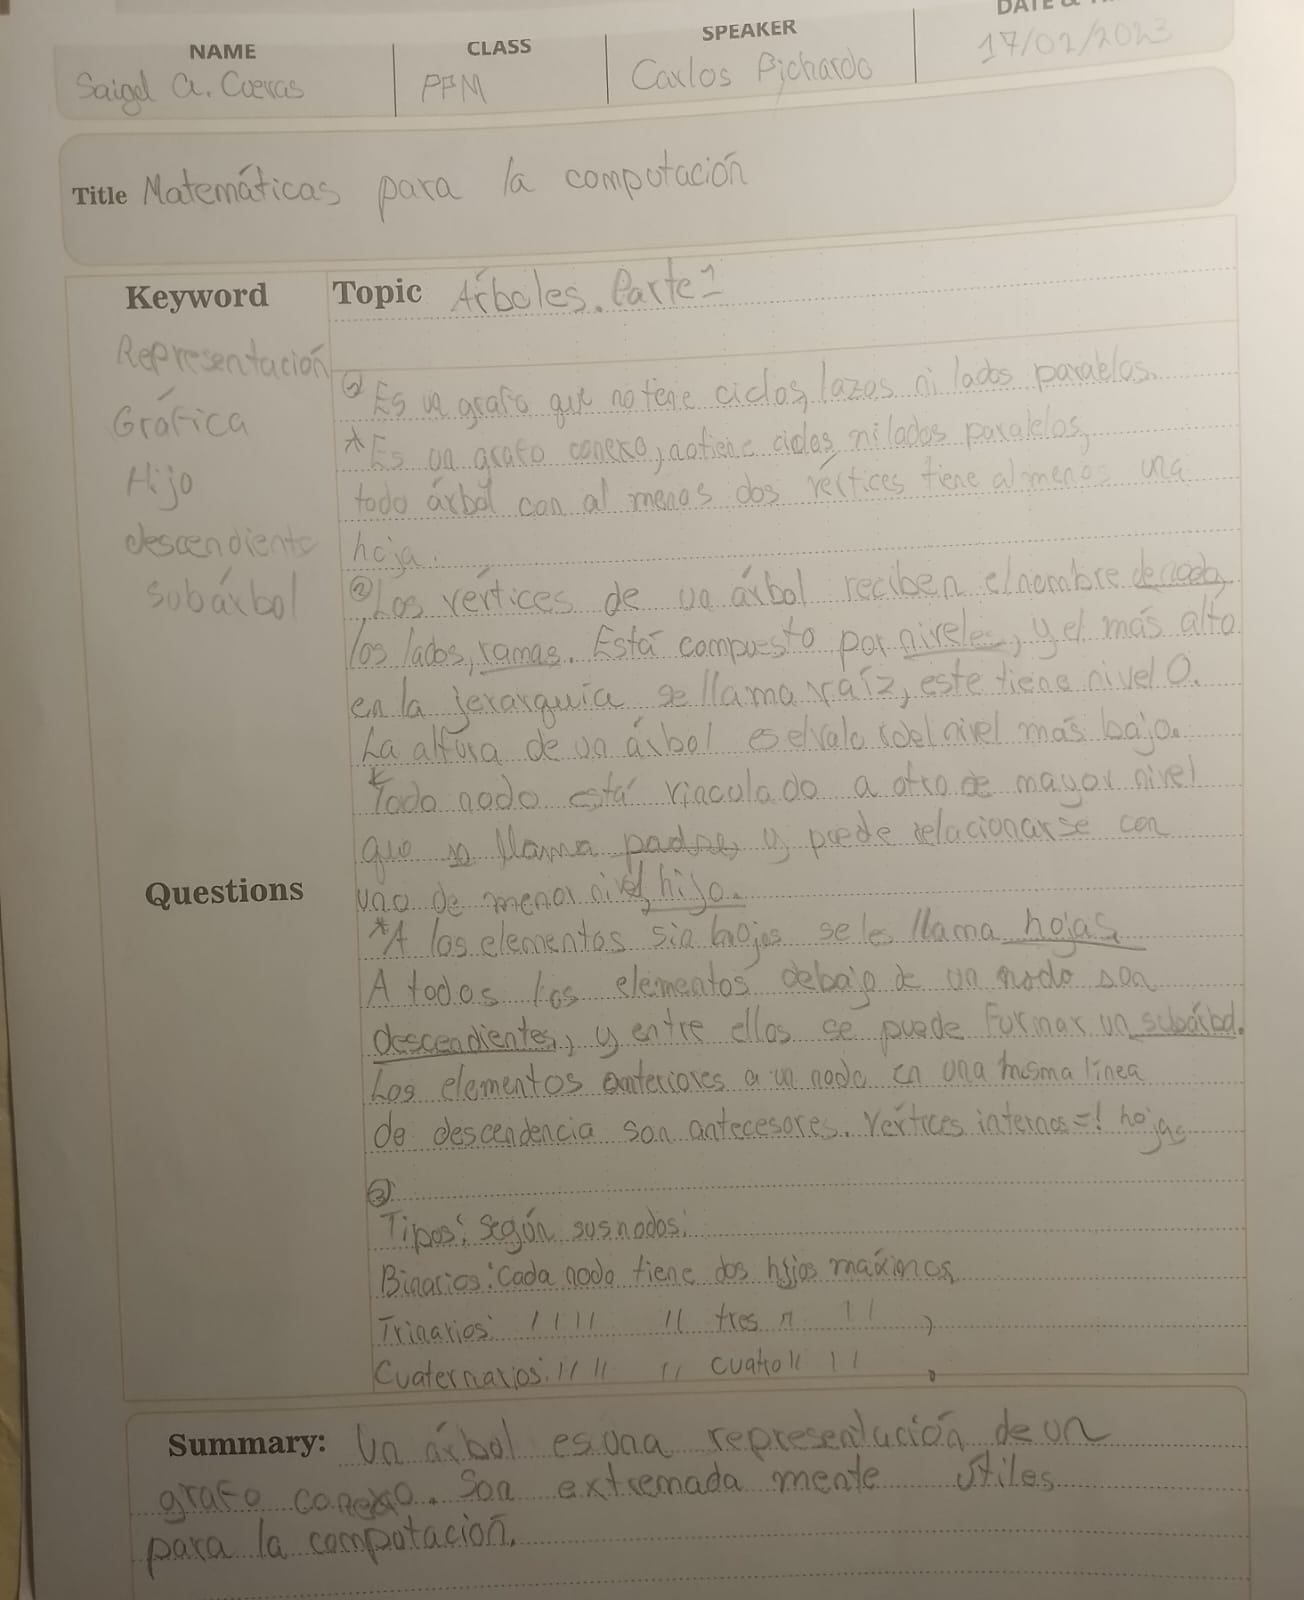 NAME
CLASS
SPEAKER
DATE &
Saigel A. Cuevas
PPM
Carlos Pichardo
17/02/2023
Title Matemáticas para la computación
Keyword
Topic Árboles. Parte 1
Representación
Gráfica
Hijo
descendiente
Subárbol
① Es un grafo que no tiene ciclos, lazos ni lados paralelos.
*Es un grafo conexo, no tiene ciclos ni lados paralelos,
todo árbol con al menos dos vértices tiene al menos una
hoja.
② Los vértices de un árbol reciben el nombre de nodos,
los lados, ramas. Está compuesto por niveles, y el más alto
en la jerarquía se llama raíz, este tiene nivel 0.
La altura de un árbol es el valor del nivel más bajo.
*Todo nodo está vinculado a otro de mayor nivel
que se llama padre, y puede relacionarse con
uno de menor nivel, hijo.
Questions
*A los elementos sin hijos se les llama hojas.
A todos los elementos debajo de un nodo son
descendientes, y entre ellos se puede formar un subárbol.
Los elementos anteriores a un nodo en una misma línea
de descendencia son antecesores. Vértices internos =! hojas
③
Tipos: Según sus nodos:
Binarios: Cada nodo tiene dos hijos máximos
Trinarios: // // // tres // // ,
Cuaternarios: // // // cuatro // // .
Summary: Un árbol es una representación de un
grafo conexo. Son extremada mente útiles
para la computación.